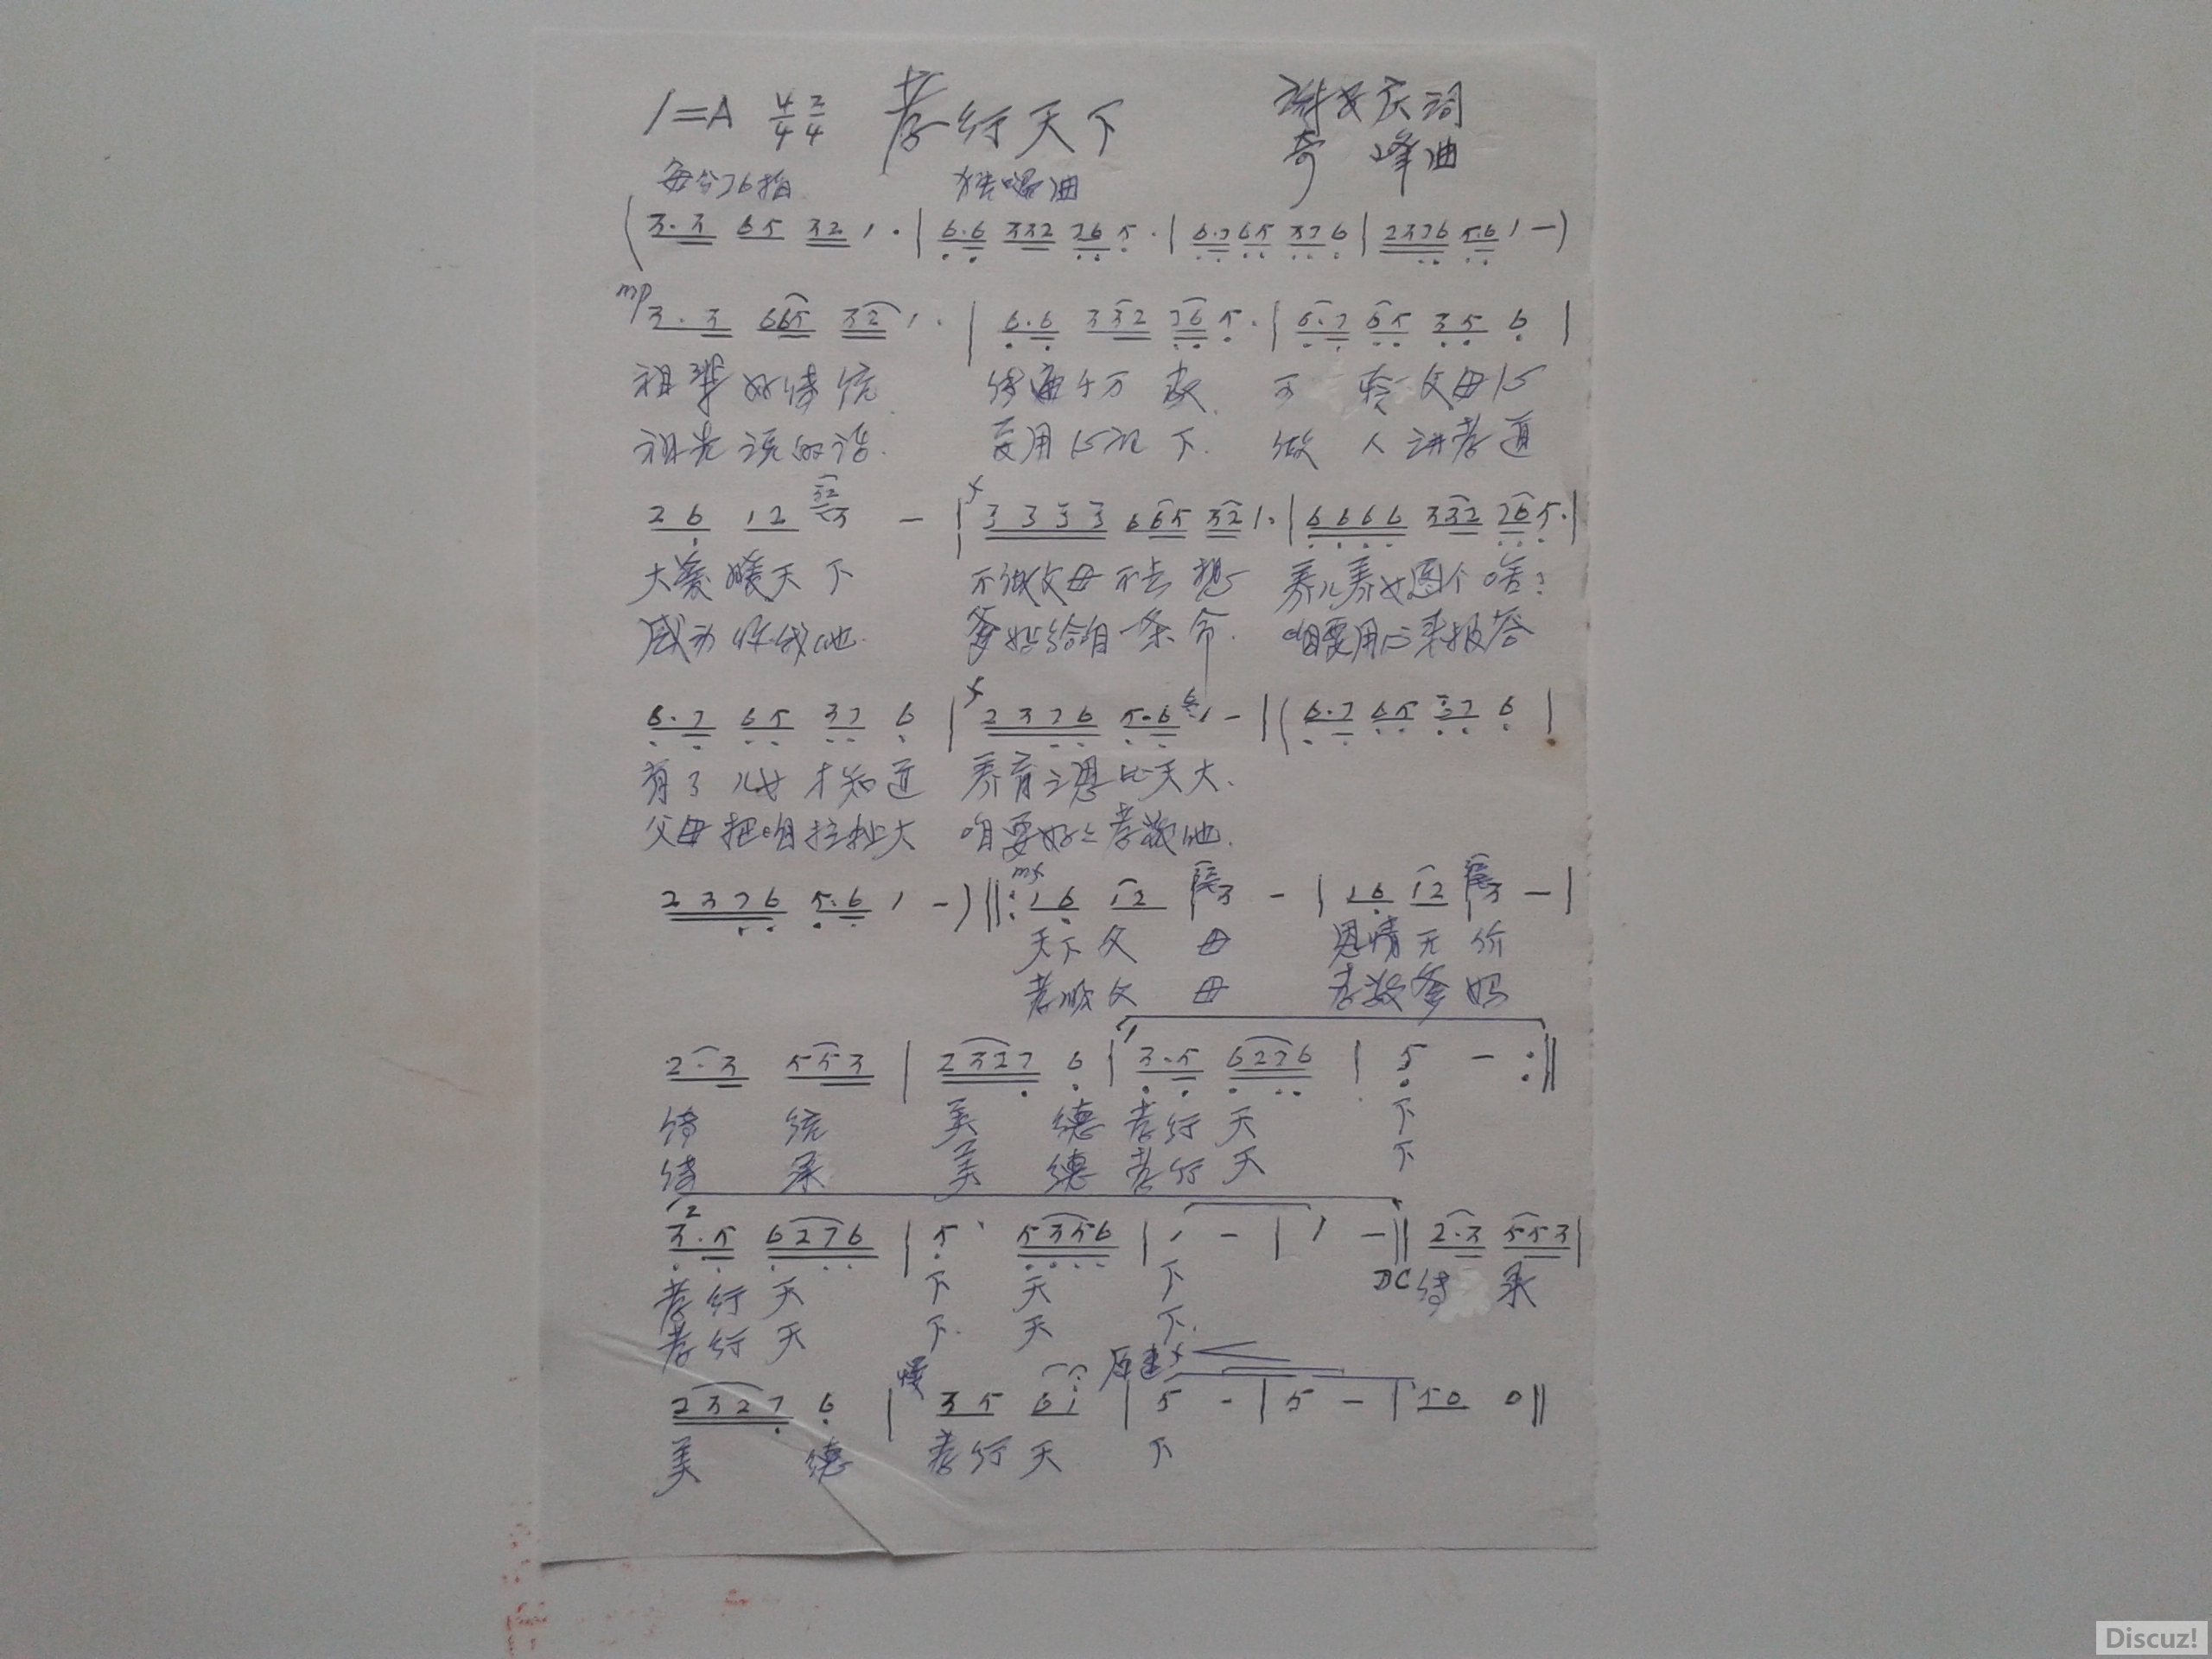 1=A 4/4 2/4 孝行天下 谢安庆词
奇峰曲
每分76拍 独唱曲
(3·3 65 32 1·|6·6 332 76 5·|6·7 65 37 6|2376 5·6 1 —)
mp 3·3 665 32 1·|6·6 332 76 5·|6·7 65 35 6|
祖辈好传统 传遍千万家 可 父母心
祖先说的话 要用心记下 做人讲孝道
26 12 32 3 —|f 3333 665 32 1·|6666 332 76 5·|
大爱暖天下 不做父母不去想 养儿养女图个啥?
感动你我他 爹妈给咱一条命 咱要用心来报答
6·7 65 37 6|f 2376 5·6 6 1 —|(6·7 65 37 6|
有了儿女才知道 养育之恩比天大
父母把咱拉扯大 咱要好好孝敬他
2376 5·6 1 —)‖: mf 16 12 3 —|16 12 3 —|
天下父母 恩情无价
孝顺父母 孝敬爹妈
2·3 553|2327 6|1 3·5 6276|5 — :‖
传统美德孝行天下
传承美德孝行天下
2 3·5 6276|5 5356|1 —|1 —‖2·3 553|
孝行天下天下 DC 传承
孝行天下天下
慢 原速 f
2327 6|35 6i|5 —|5 —|50 0‖
美德孝行天下
Discuz!